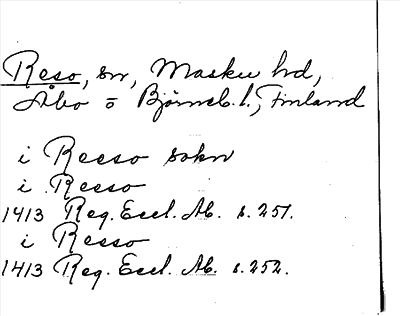 Reso, sn, Masku hd,
Åbo o Björneb. l., Finland
i Resso sokn
i Resso
1413 Reg. Eccl. Ab. s. 251.
i Resso
1413 Reg. Eccl. Ab. s. 252.